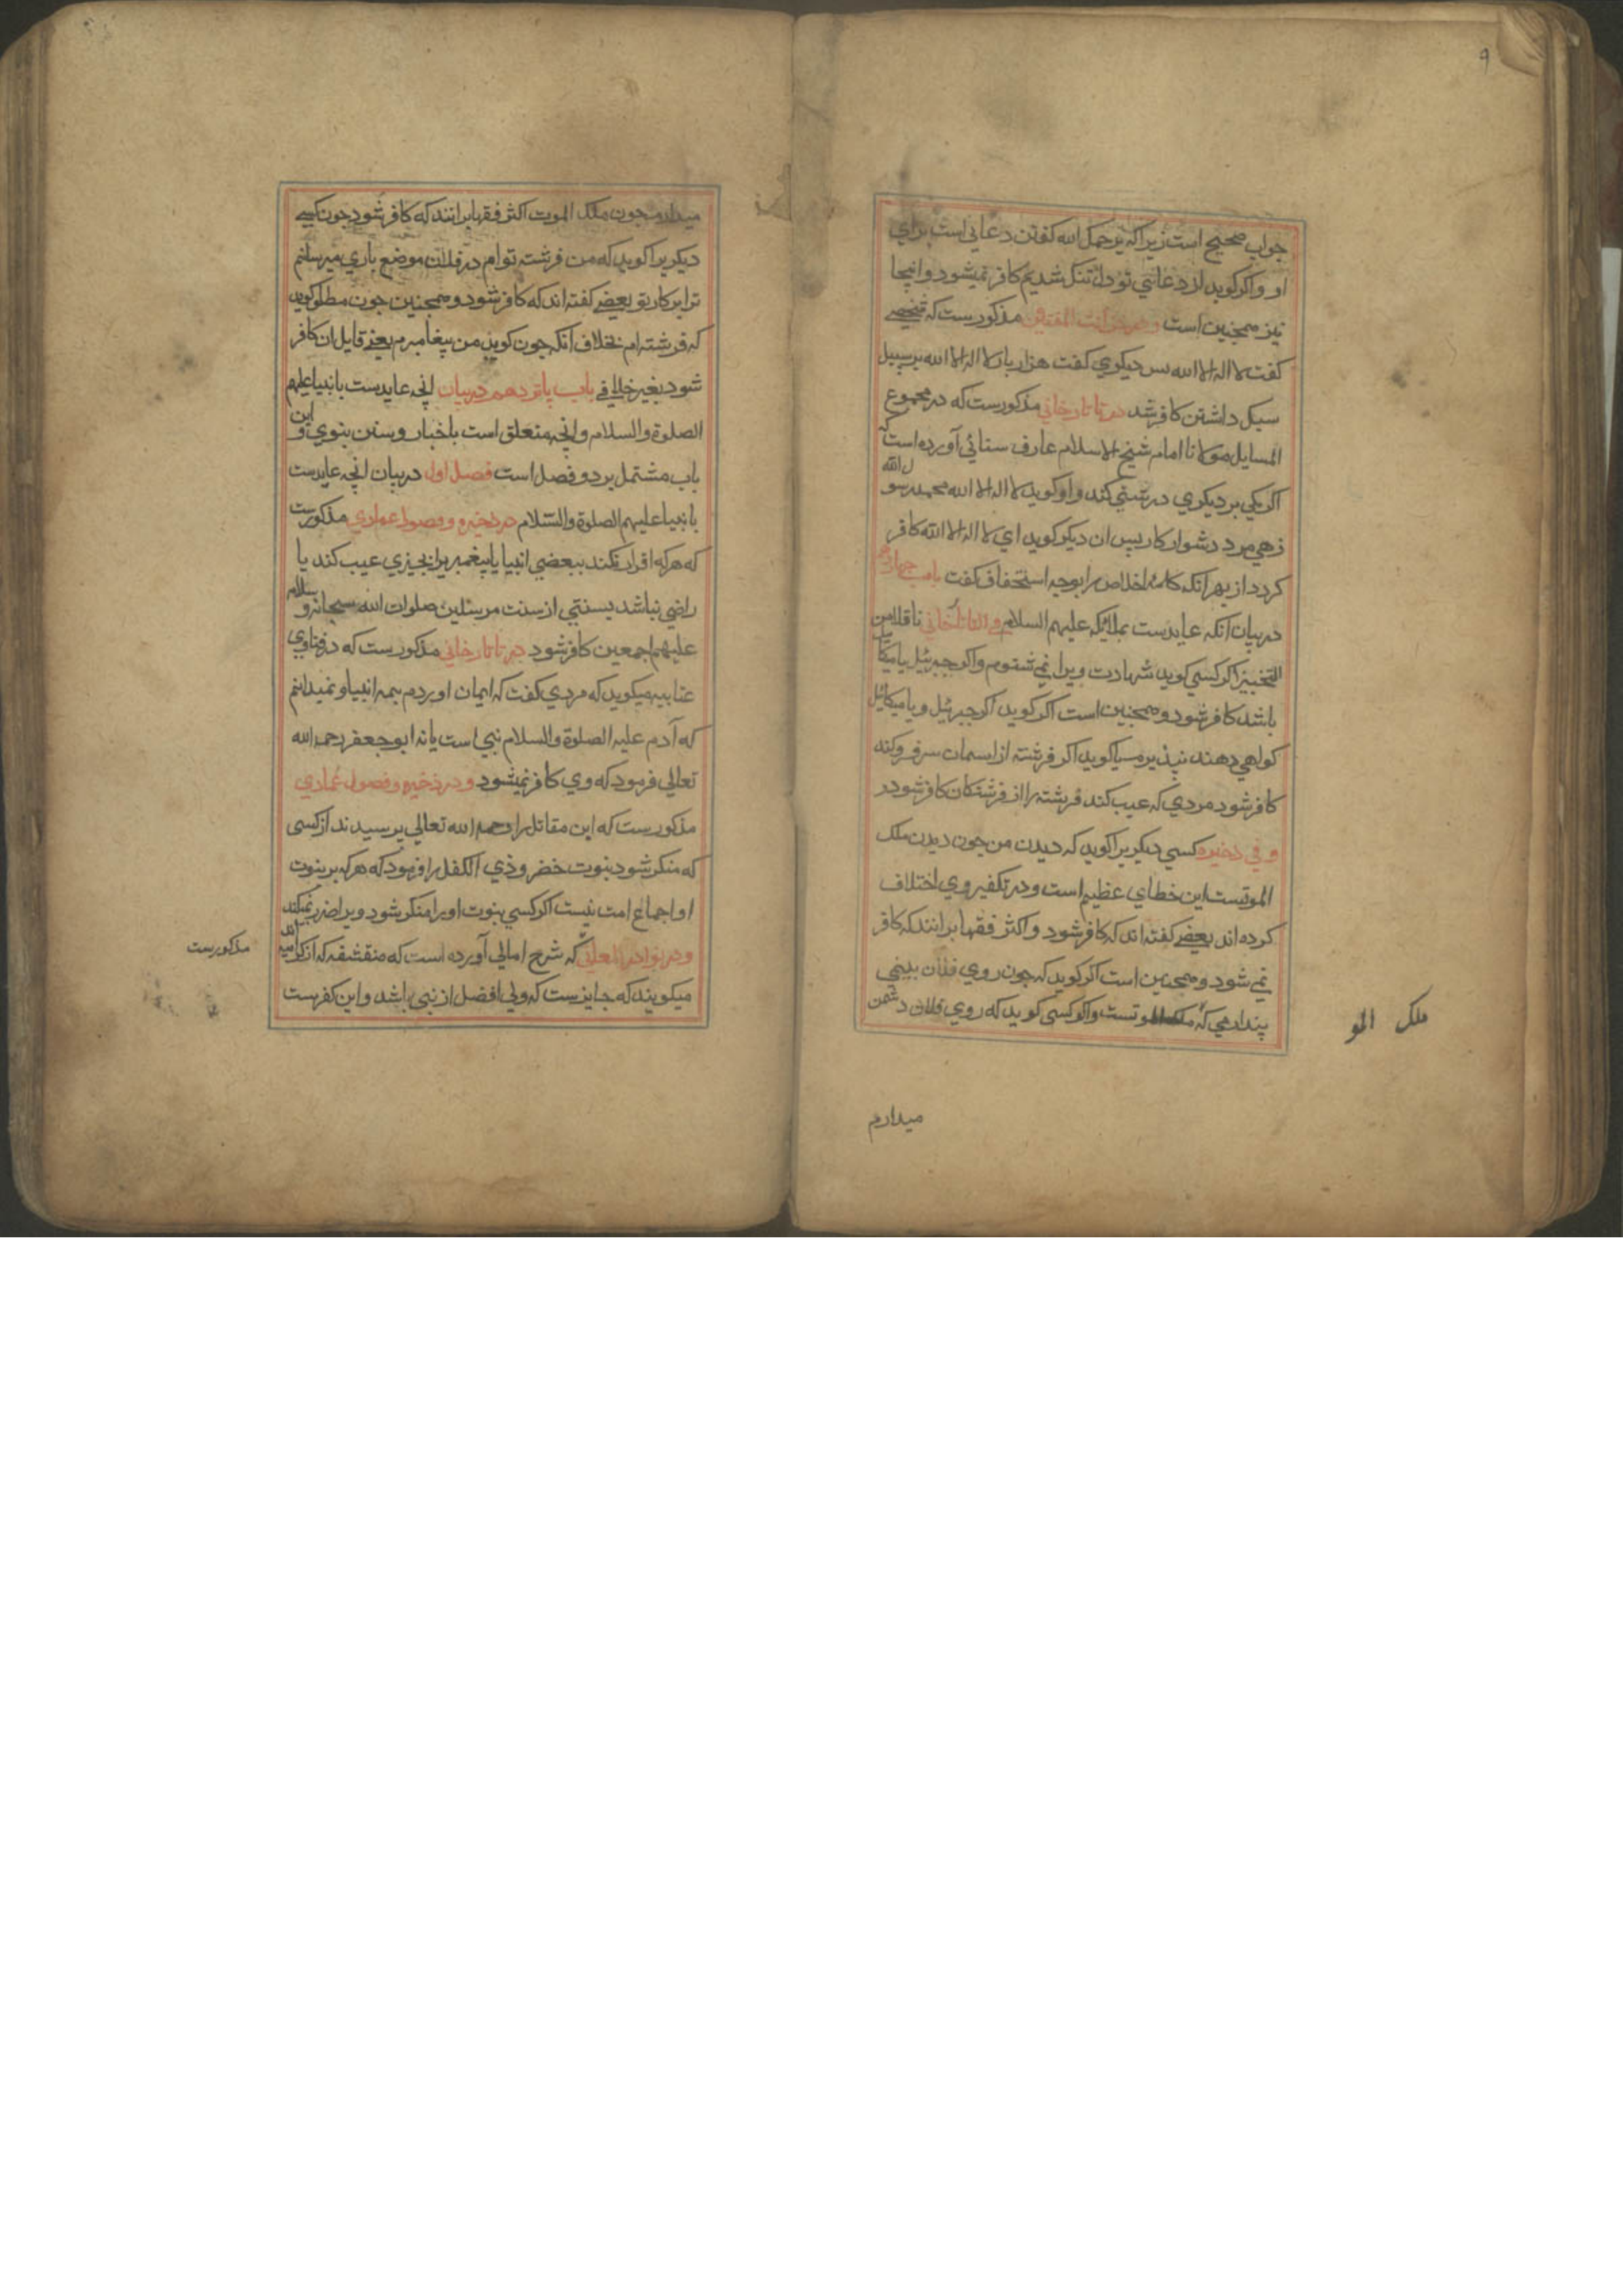 ۹
جواب صحیح است زیرا که یرحمک الله کفتن دعائی است برای
او واکر کوید از دعائی تو دل تنک شدیم کافر نمیشود و اینجا
نیز همچنین است مذکورست که شخصے
کفت لا اله الا الله پس دیکری کفت هزار بار لا اله الا الله بر سبیل
سبک داشتن کافر شد در تاتارخانی مذکورست که در مجموع
المسایل مولانا امام شیخ الاسلام عارف سنائی آورده است که
اکر یکی بر دیکری درشتی کند و او کوید لا اله الا الله محمد رسول الله
زهی مرد دشوار کار پس ان دیکر کوید ای لا اله الا الله کافر
کردد از بهر آنکه کلمه اخلاص را بوجه استخفاف کفت باب چهاردهم
در بیان آنکه عایدست بملایکه علیهم السلام فی التاتارخانی ناقلا من
اکر کسی کوید شهادت ویرا نمی شنوم واکر جبرئیل یا میکائیل
باشد کافر شود و همچنین است اکر کوید اکر جبرئیل و یا میکائیل
کواهی دهند نپذیرم یا کوید اکر فرشته از اسمان سر فرو کند
کافر شود مردی که عیب کند فرشته را از فرشتکان کافر شود
و فی ذخیره کسی دیکریرا کوید که دیدن من چون دیدن ملک
الموتست این خطای عظیم است و در تکفیر وی اختلاف
کرده اند بعضے کفته اند که کافر شود و اکثر فقها برانند که کافر
نمی شود و همچنین است اکر کوید که چون روی فلان بینی
پنداری که ملک الموتست واکر کسی کوید که روی فلان دشمن
ملک المو
میدارم
میدارم چون ملک الموت اکثر فقها برانند که کافر شود چون کسے
دیکریرا کوید که من فرشته توام در فلان موضع یاری میرسانم
ترا بر کار تو بعضے کفته اند که کافر شود و همچنین چون مطلق کوید
که فرشته ام بخلاف آنکه چون کوید من پیغامبرم یعنے قایل ان کافر
شود بغیر خلافے باب پانزدهم در بیان انچه عایدست بانبیا علیهم
الصلوة والسلام وانچه متعلق است باخبار و سنن نبوی و این
باب مشتمل بر دو فصل است فصل اول در بیان انچه عایدست
بانبیا علیهم الصلوة والسلام در ذخیره و فصول عمادی مذکورست
که هرکه اقرار نکند ببعضی انبیا یا پیغمبریرا بچیزی عیب کند یا
راضی نباشد بسنتی از سنت مرسلین صلوات الله سبحانه و سلامه
علیهم اجمعین کافر شود در تاتارخانی مذکورست که در فتاوی
عتابیه میکوید که مردی کفت که ایمان اوردم بهمه انبیا و نمیدانم
که آدم علیه الصلوة والسلام نبی است یا نه ابو جعفر رحمه الله
تعالی فرمود که وی کافر نمیشود و در ذخیره و فصول عمادی
مذکورست که ابن مقاتل را رحمه الله تعالی پرسیدند از کسی
که منکر شود بنبوت خضر و ذی الکفل را فرمود که هرکه بر نبوت
او اجماع امت نیست اکر کسی نبوت او را منکر شود ویرا ضرر نمیکند
و در نوادر المعانی که شرح امالی آورده است که متقشفه که از کرامیه اند
میکویند که جایزست که ولی افضل از نبی باشد و این کفرست
مذکورست